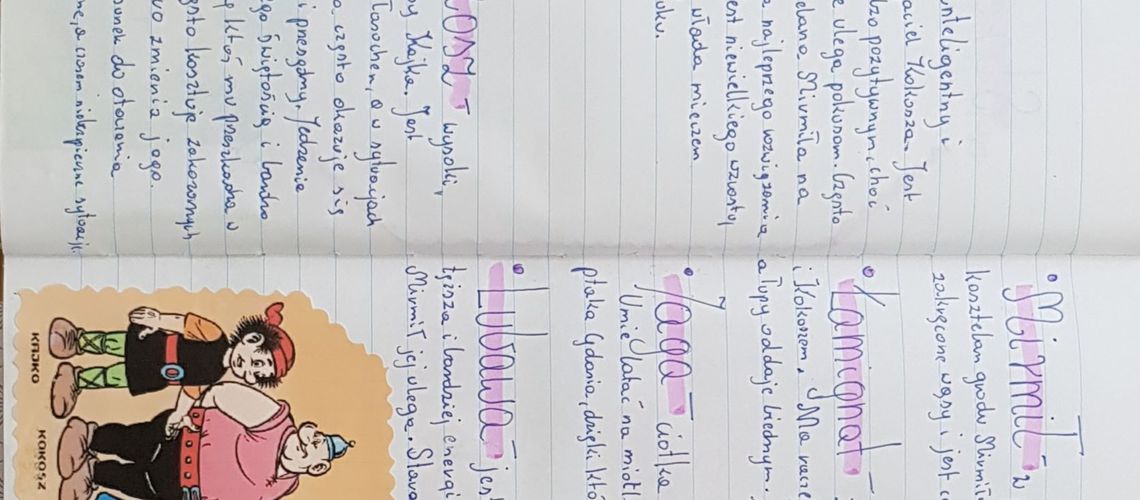 nteligentny i
aciel Kokosza. Jest
dzo pozytywnym, choć
e ulega pokusom. Często
edana Mirmiła na
a najlepszego rozwiązania
est niewielkiego wzrostu
włada mieczem
uku.
OSZ - wysoki,
by Kajka. Jest
łasochem, a w sytuacjach
a często okazuje się
i Jedzenie
go świętością i bardzo
ktoś mu przeszkadza w
sto kosztuje zakazanych
o zmienia jego
unek do otoczenia
ne, a czasem niebezpieczne sytuacje.
Mirmił - w
kasztelan grodu Mirmił
zakręcone wąsy i jest
Łamignat -
i Kokoszem. Ma
a łupy oddaje biednym.
Jaga - ciotka
Umie latać na miotl
ptaka Gdania, dzięki któ
Lubawa - jes
tęższa i bardziej energi
Mirmił jej ulega.
KAJKO
KOKOSZ